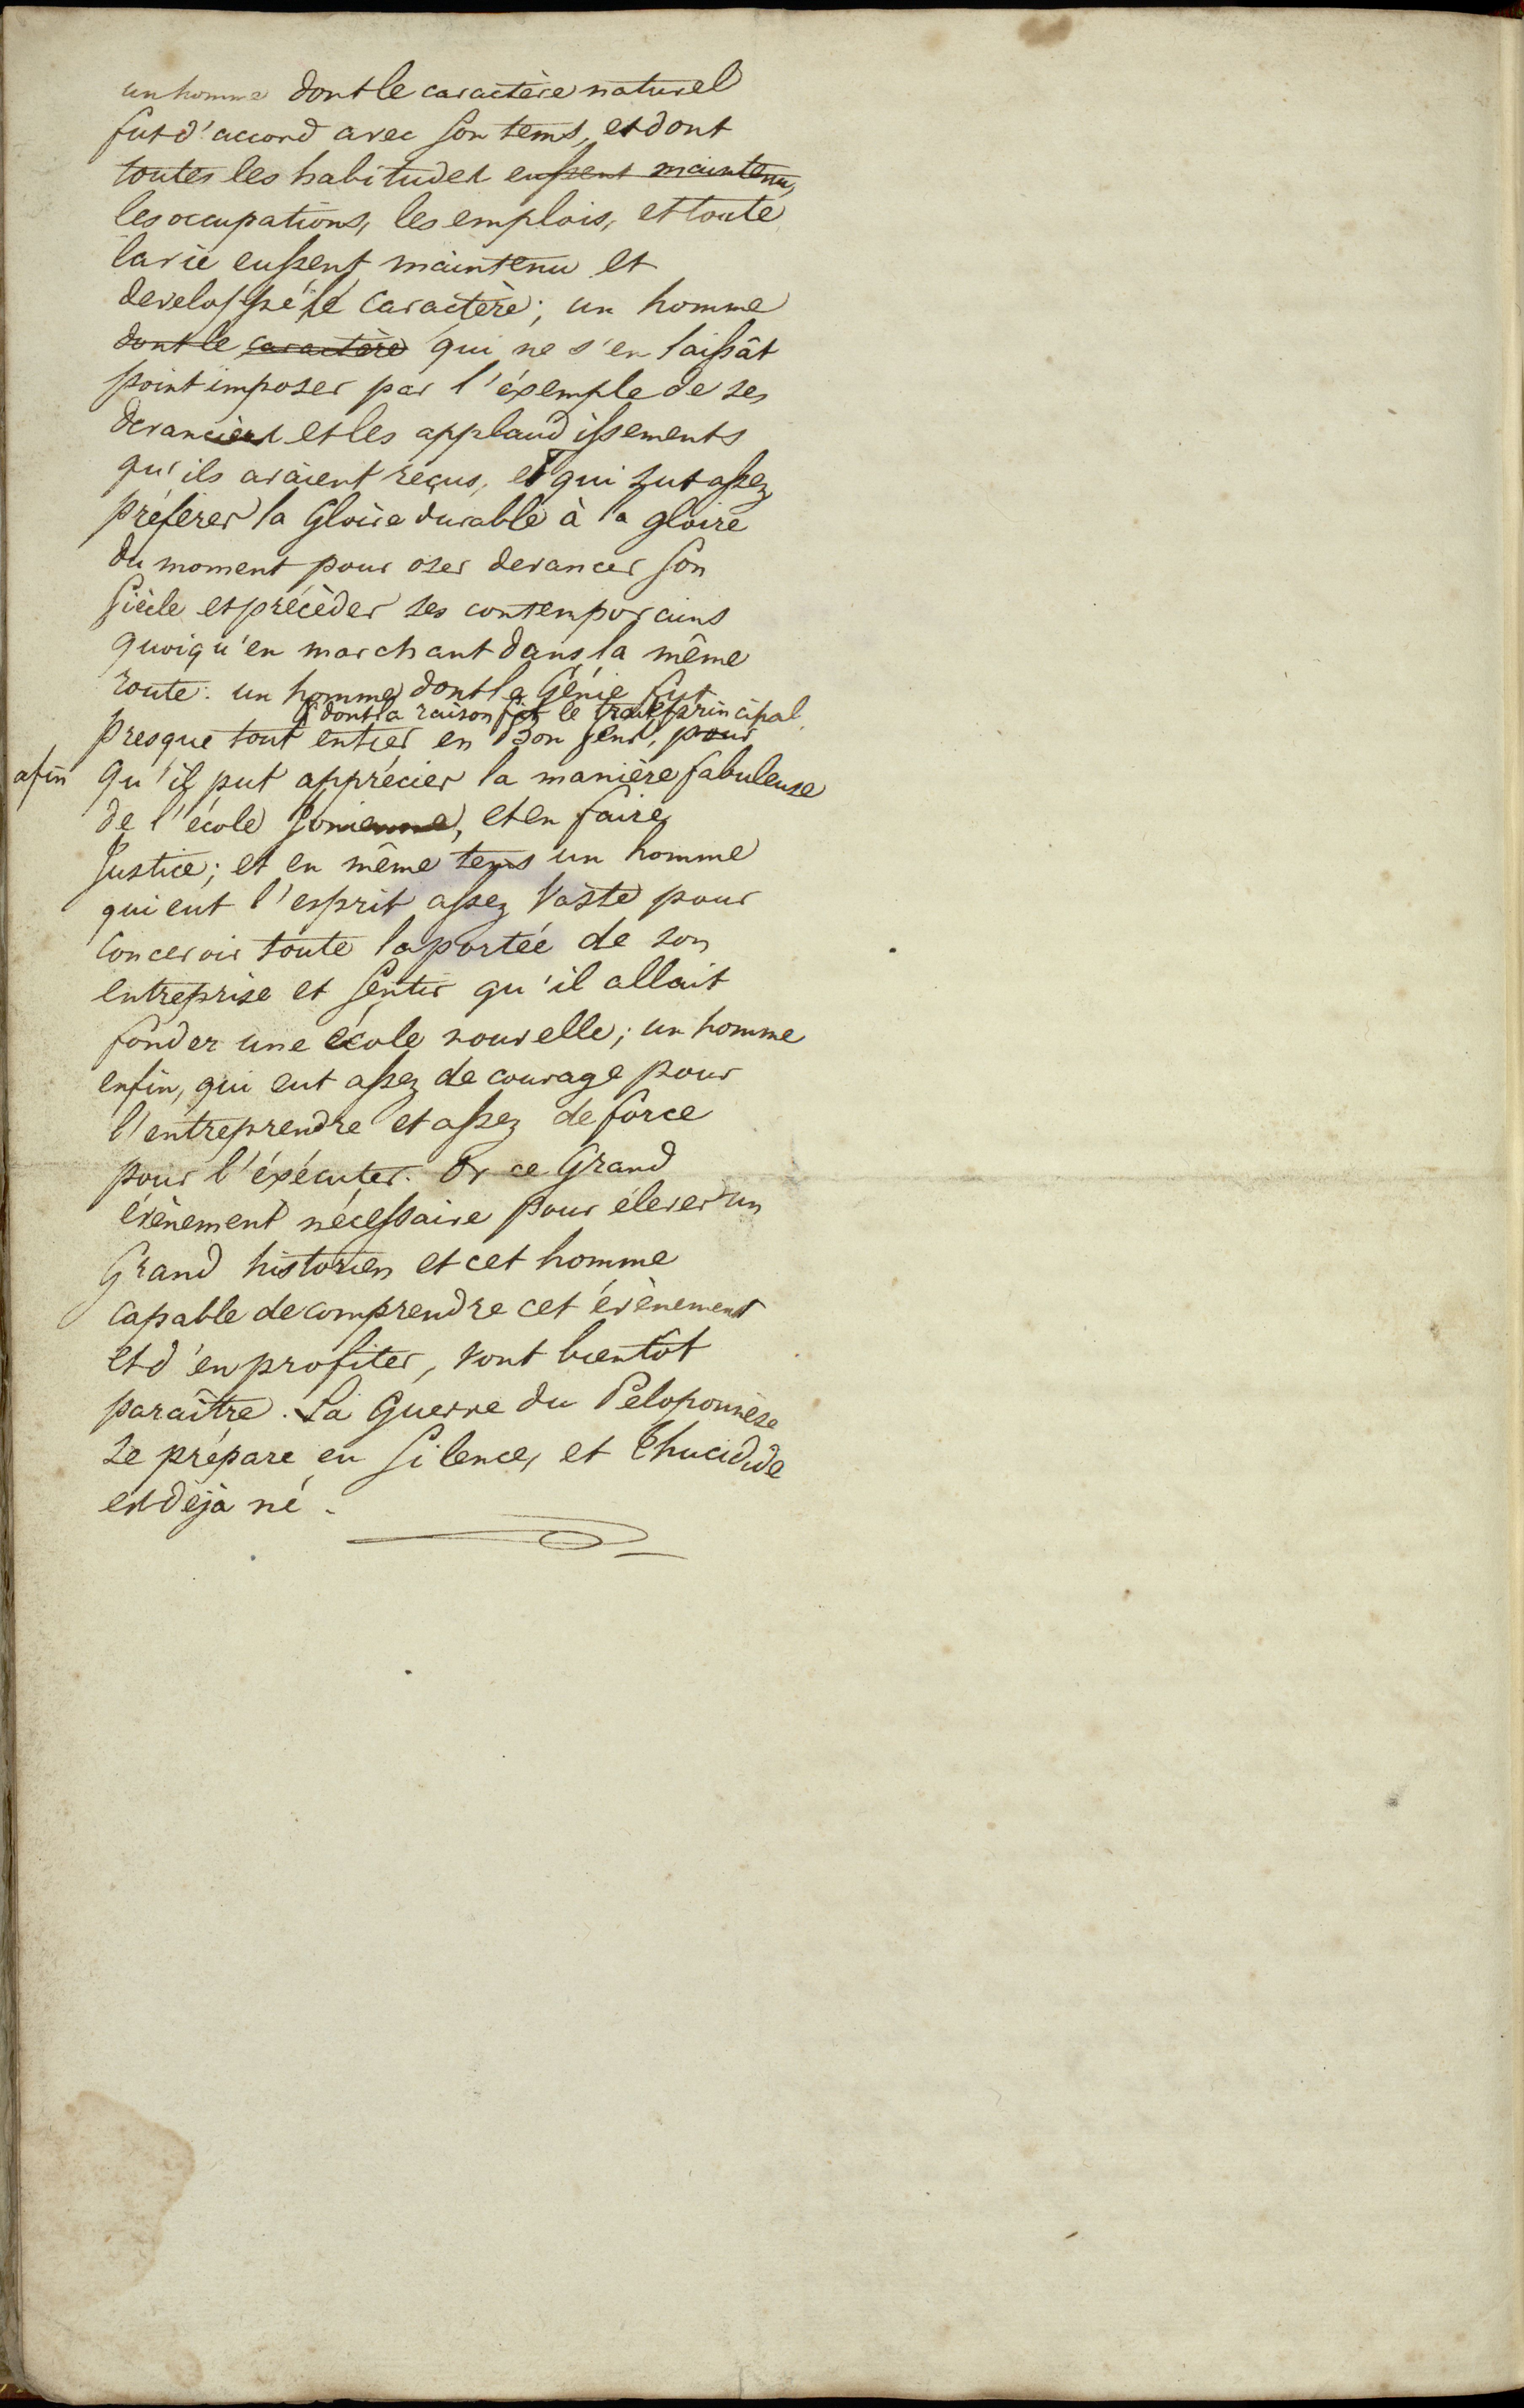 un homme dont le caractère naturel
fut d'accord avec son tems, et dont
toutes les habitudes eussent maintenu,
les occupations, les emplois, et toute
la vie eussent maintenu et
developpé le caractère; un homme
dont le caractère qui ne s'en laissât
point imposer par l'éxemple de ses
devanciers et les applaudissements
qu'ils avaient reçus, et qui sut assez
préferer la Gloire durable à la gloire
du moment pour oser devancer son
siècle et précèder ses contemporains
quoiqu'en marchant dans la même
route: un homme dont le Génie fut
et dont la raison fut le trait principal
presque tout entier en Bon sens, pour
afin qu'il put apprécier la manière fabuleuse
de l'école Ionienne, et en faire
Justice; et en même tems un homme
qui eut l'esprit assez vaste pour
concevoir toute la portée de son
entreprise et sentir qu'il allait
fonder une école nouvelle; un homme
enfin, qui eut assez de courage pour
l'entreprendre et assez de force
pour l'éxécuter. Or ce Grand
évènement nécessaire pour élever un
Grand historien et cet homme
capable de comprendre cet évènement
et d'en profiter, vont bientôt
paraître. La Guerre du Péloponnèse
se prépare en silence, et Thucidide
est déjà né.